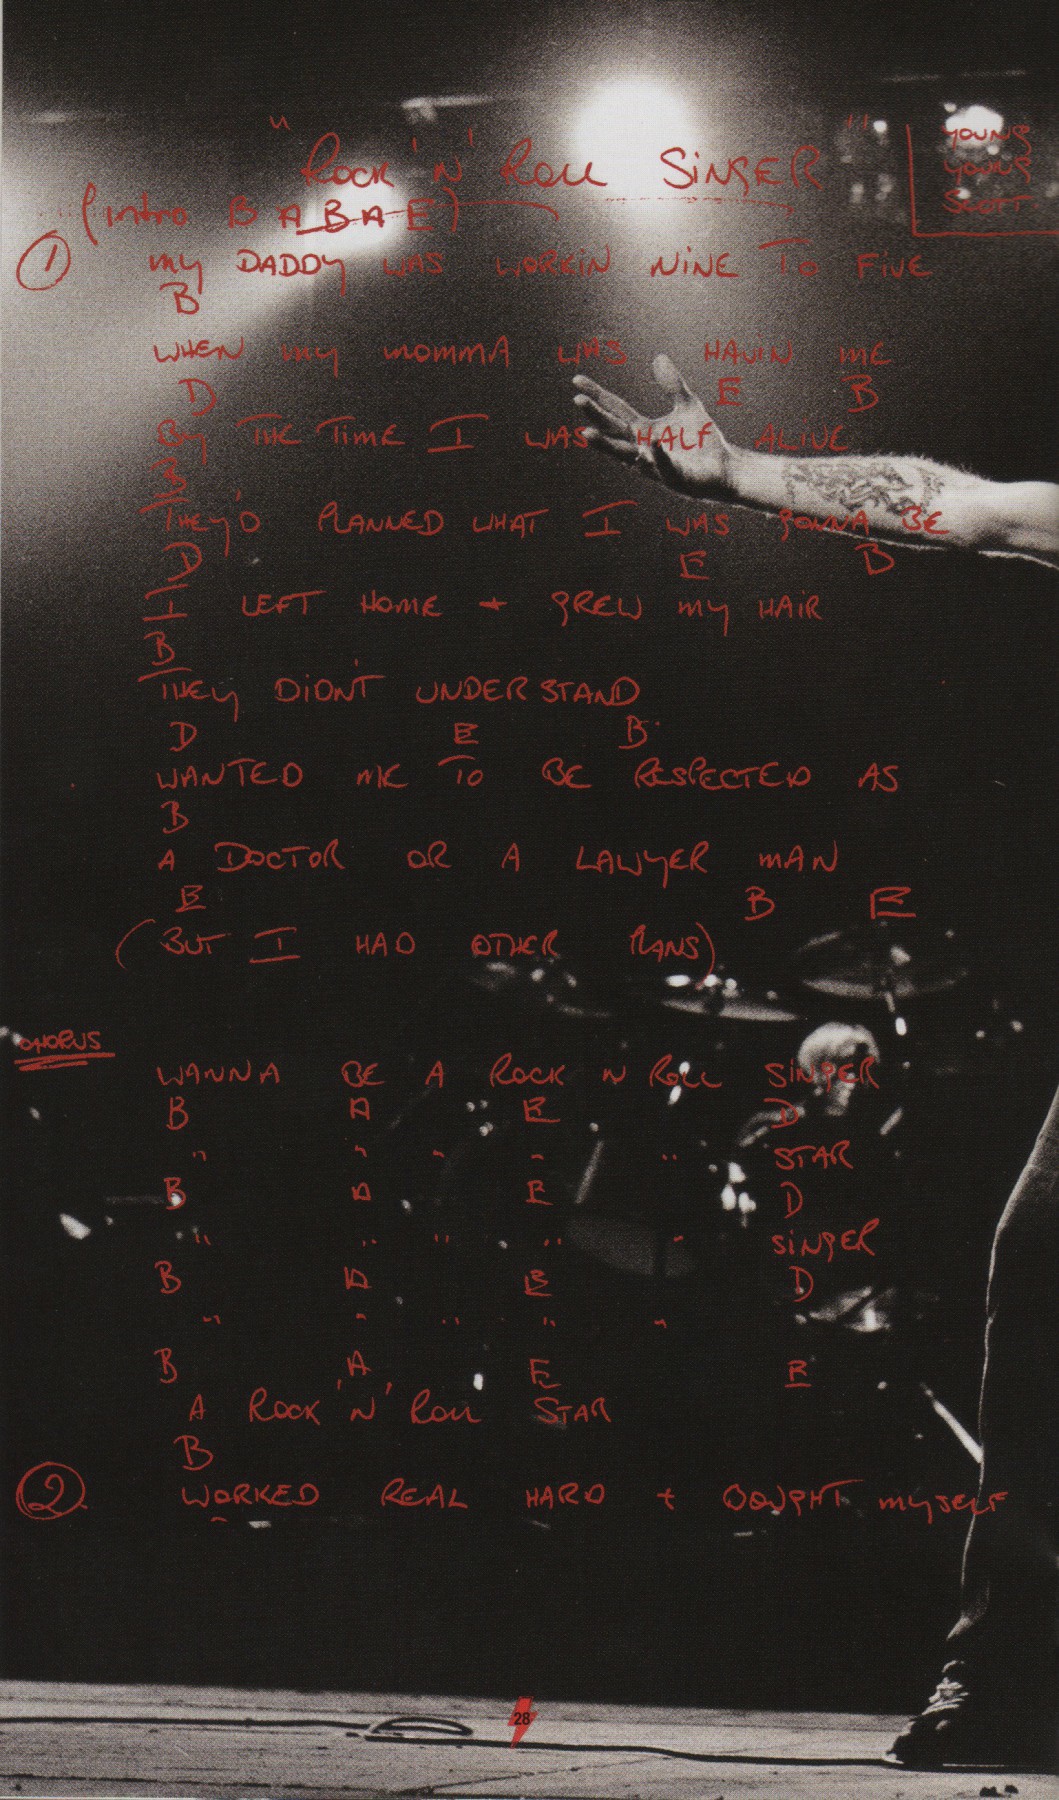 " ROCK 'N' ROLL SINGER "
YOUNG
YOUNG
SCOTT
(intro B A B A E)
① my DADDY WAS WORKIN NINE TO FIVE
B
WHEN my MOMMA WAS HAVIN ME
D E B
By THE TIME I WAS HALF ALIVE
B
THEY'D PLANNED WHAT I WAS GONNA BE
D E B
I LEFT HOME + GREW my HAIR
B
THEY DIDN'T UNDERSTAND
D E B
WANTED ME TO BE RESPECTED AS
B
A DOCTOR OR A LAWYER MAN
E B E
(BUT I HAD OTHER PLANS)
CHORUS
WANNA BE A ROCK N ROLL SINGER
B A E D
" " " " " STAR
B A E D
" " " " " SINGER
B A E D
" " " " "
B A E E
A ROCK 'N' ROLL STAR
B
② WORKED REAL HARD + BOUGHT MYSELF
28